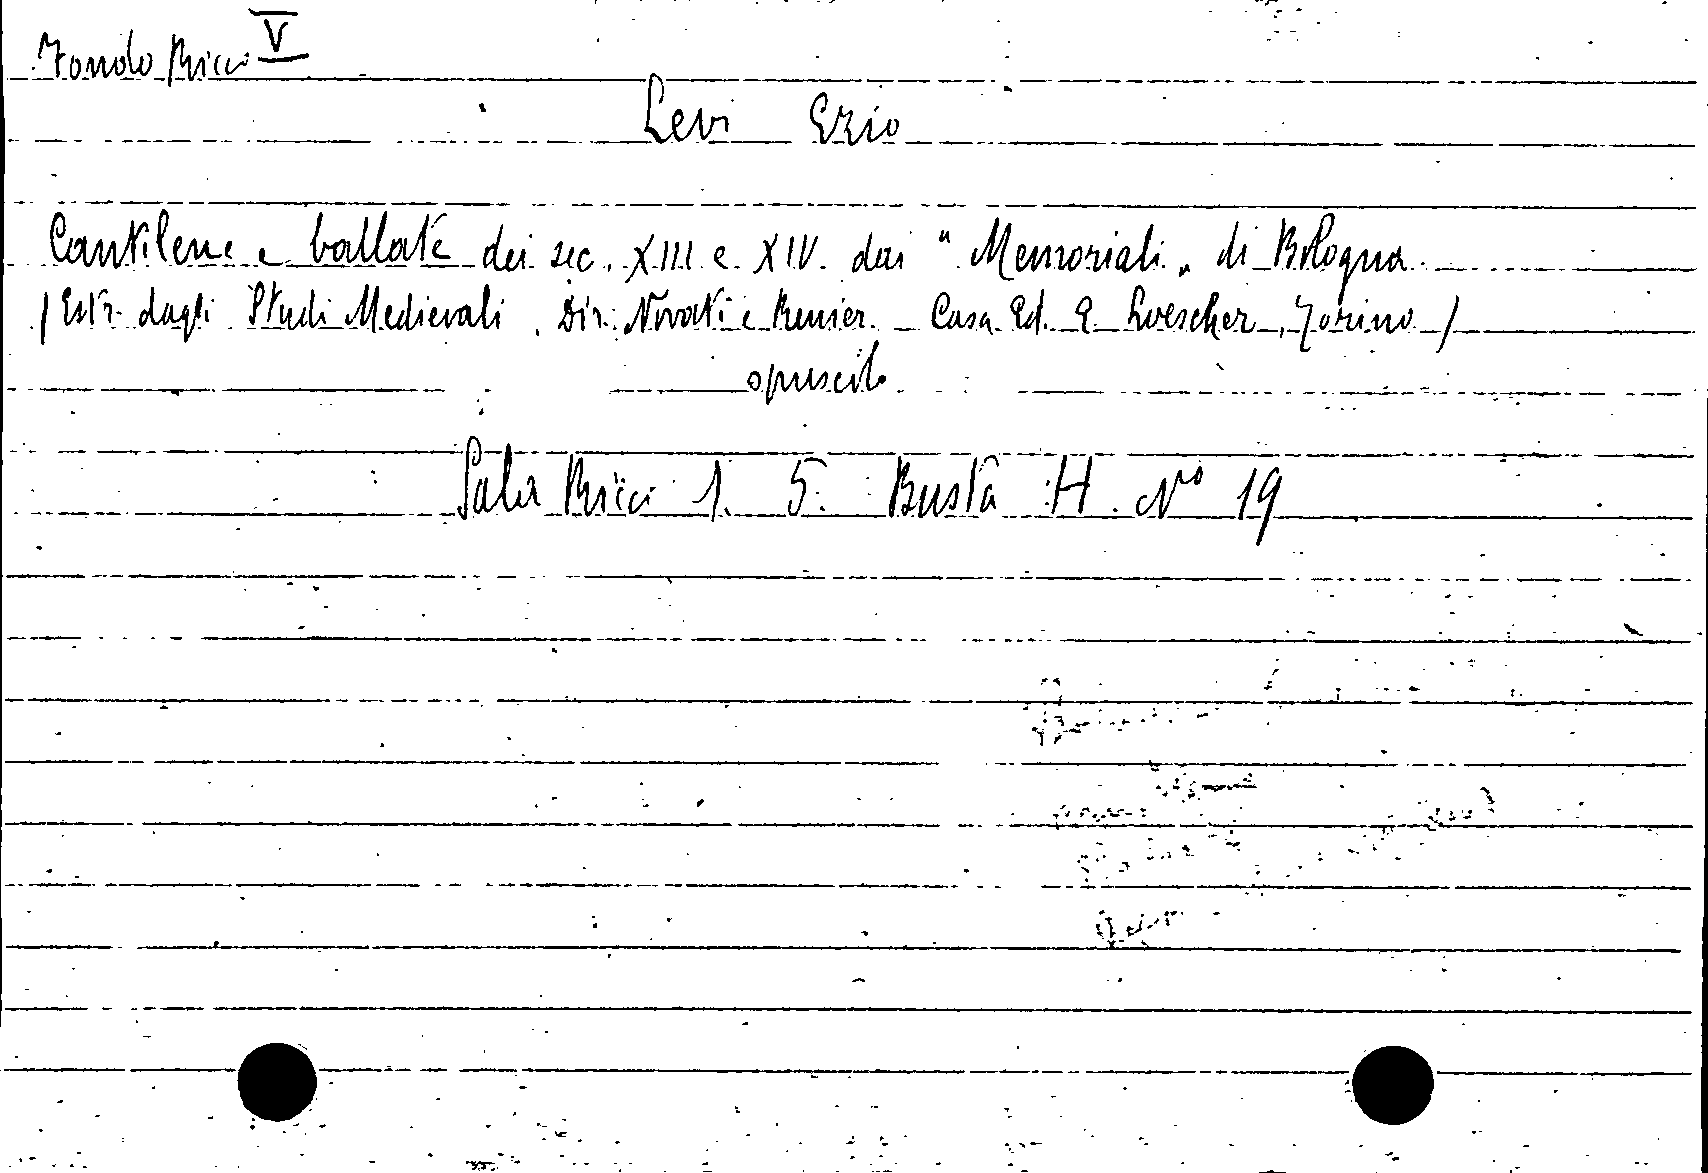 Fondo Ricci V
Levi Ezio
Cantilene e ballate dei sec. XIII e XIV dai "Memoriali" di Bologna
(Estr. dagli Studi Medievali. Dir. Novati e Renier. Casa Ed. E. Loescher, Torino)
opuscolo
Sala Ricci 1. 5. Busta H. N° 19